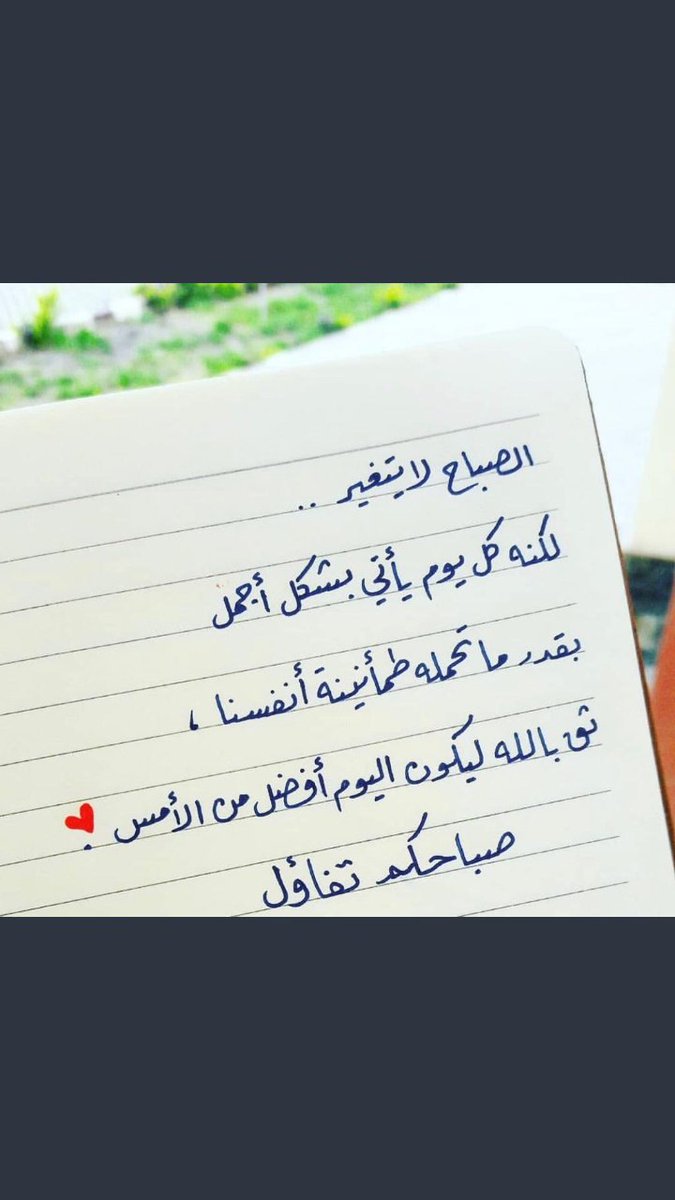 الصباح لا يتغير ..
لكنه كل يوم يأتي بشكل أجمل
بقدر ما تحمله طمأنينة أنفسنا ،
ثق بالله ليكون اليوم أفضل من الأمس .
صباحكم تفاؤل